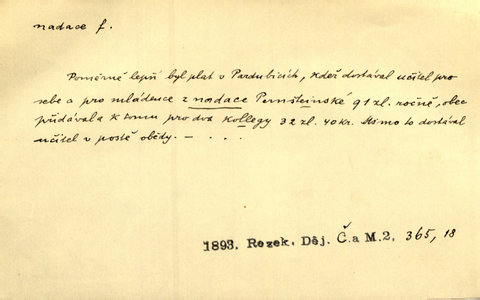 nadace f.
Poměrně lepší byl plat v Pardubicích, kdež dostával učitel pro
sebe a pro mládence z nadace Pernšteinské 91 zl. ročně, obec
přidávala k tomu pro dva kollegy 32 zl. 40 kr. Mimo to dostával
učitel v postě obědy. — . . .
1893. Rezek, Děj. Č.a M.2. 365, 18